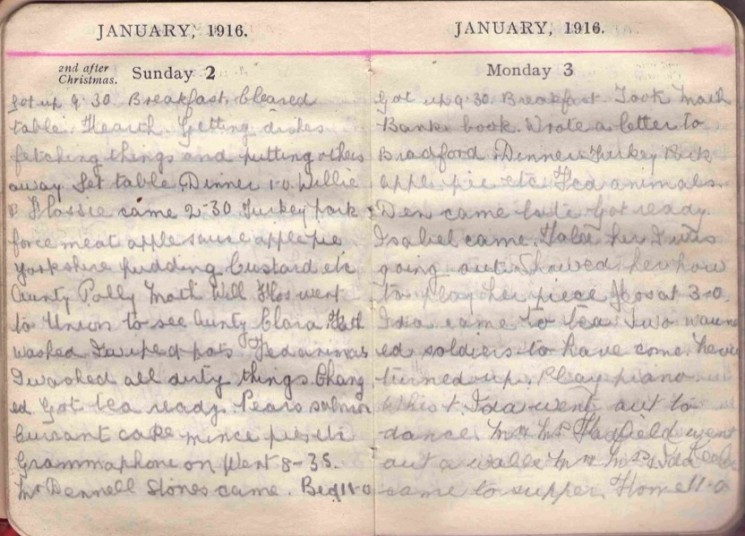 JANUARY, 1916.
2nd after Christmas. Sunday 2
Got up 9.30. Breakfast. Cleared
table. Hearth. Getting dishes
fetching things and putting others
away. Set table. Dinner 1-0. Willie
Flossie came 2-30 Turkey pork
force meat apple sauce apple pie
Yorkshire pudding Custard etc
Aunty Polly Moth Will Flos went
to Union to see Aunty Clara.
washed I wiped pots. Fed animals
I washed all dirty things Chang
ed Got tea ready. Pears salmon
Currant cake mince pies etc
Grammaphone on Went 8-35.
Mr Dennell Stones came. Bed 11-0
JANUARY, 1916.
Monday 3
Got up 9.30 Breakfast. Took Moth
Bank book. Wrote a letter to
Bradford. Dinner Turkey Pork
apple pie etc. Fed animals.
Den came late Got ready
Isabel came. Told her I was
going out. Showed her how
to play her piece. at 3-0.
Ida came to tea. Two wound
ed soldiers to have come never
turned up. Play piano
Whist. Ida went out to
dance. Mr Mrs Hadfield went
out a walk. Mr Mrs Ida
came to supper. Home 11-0